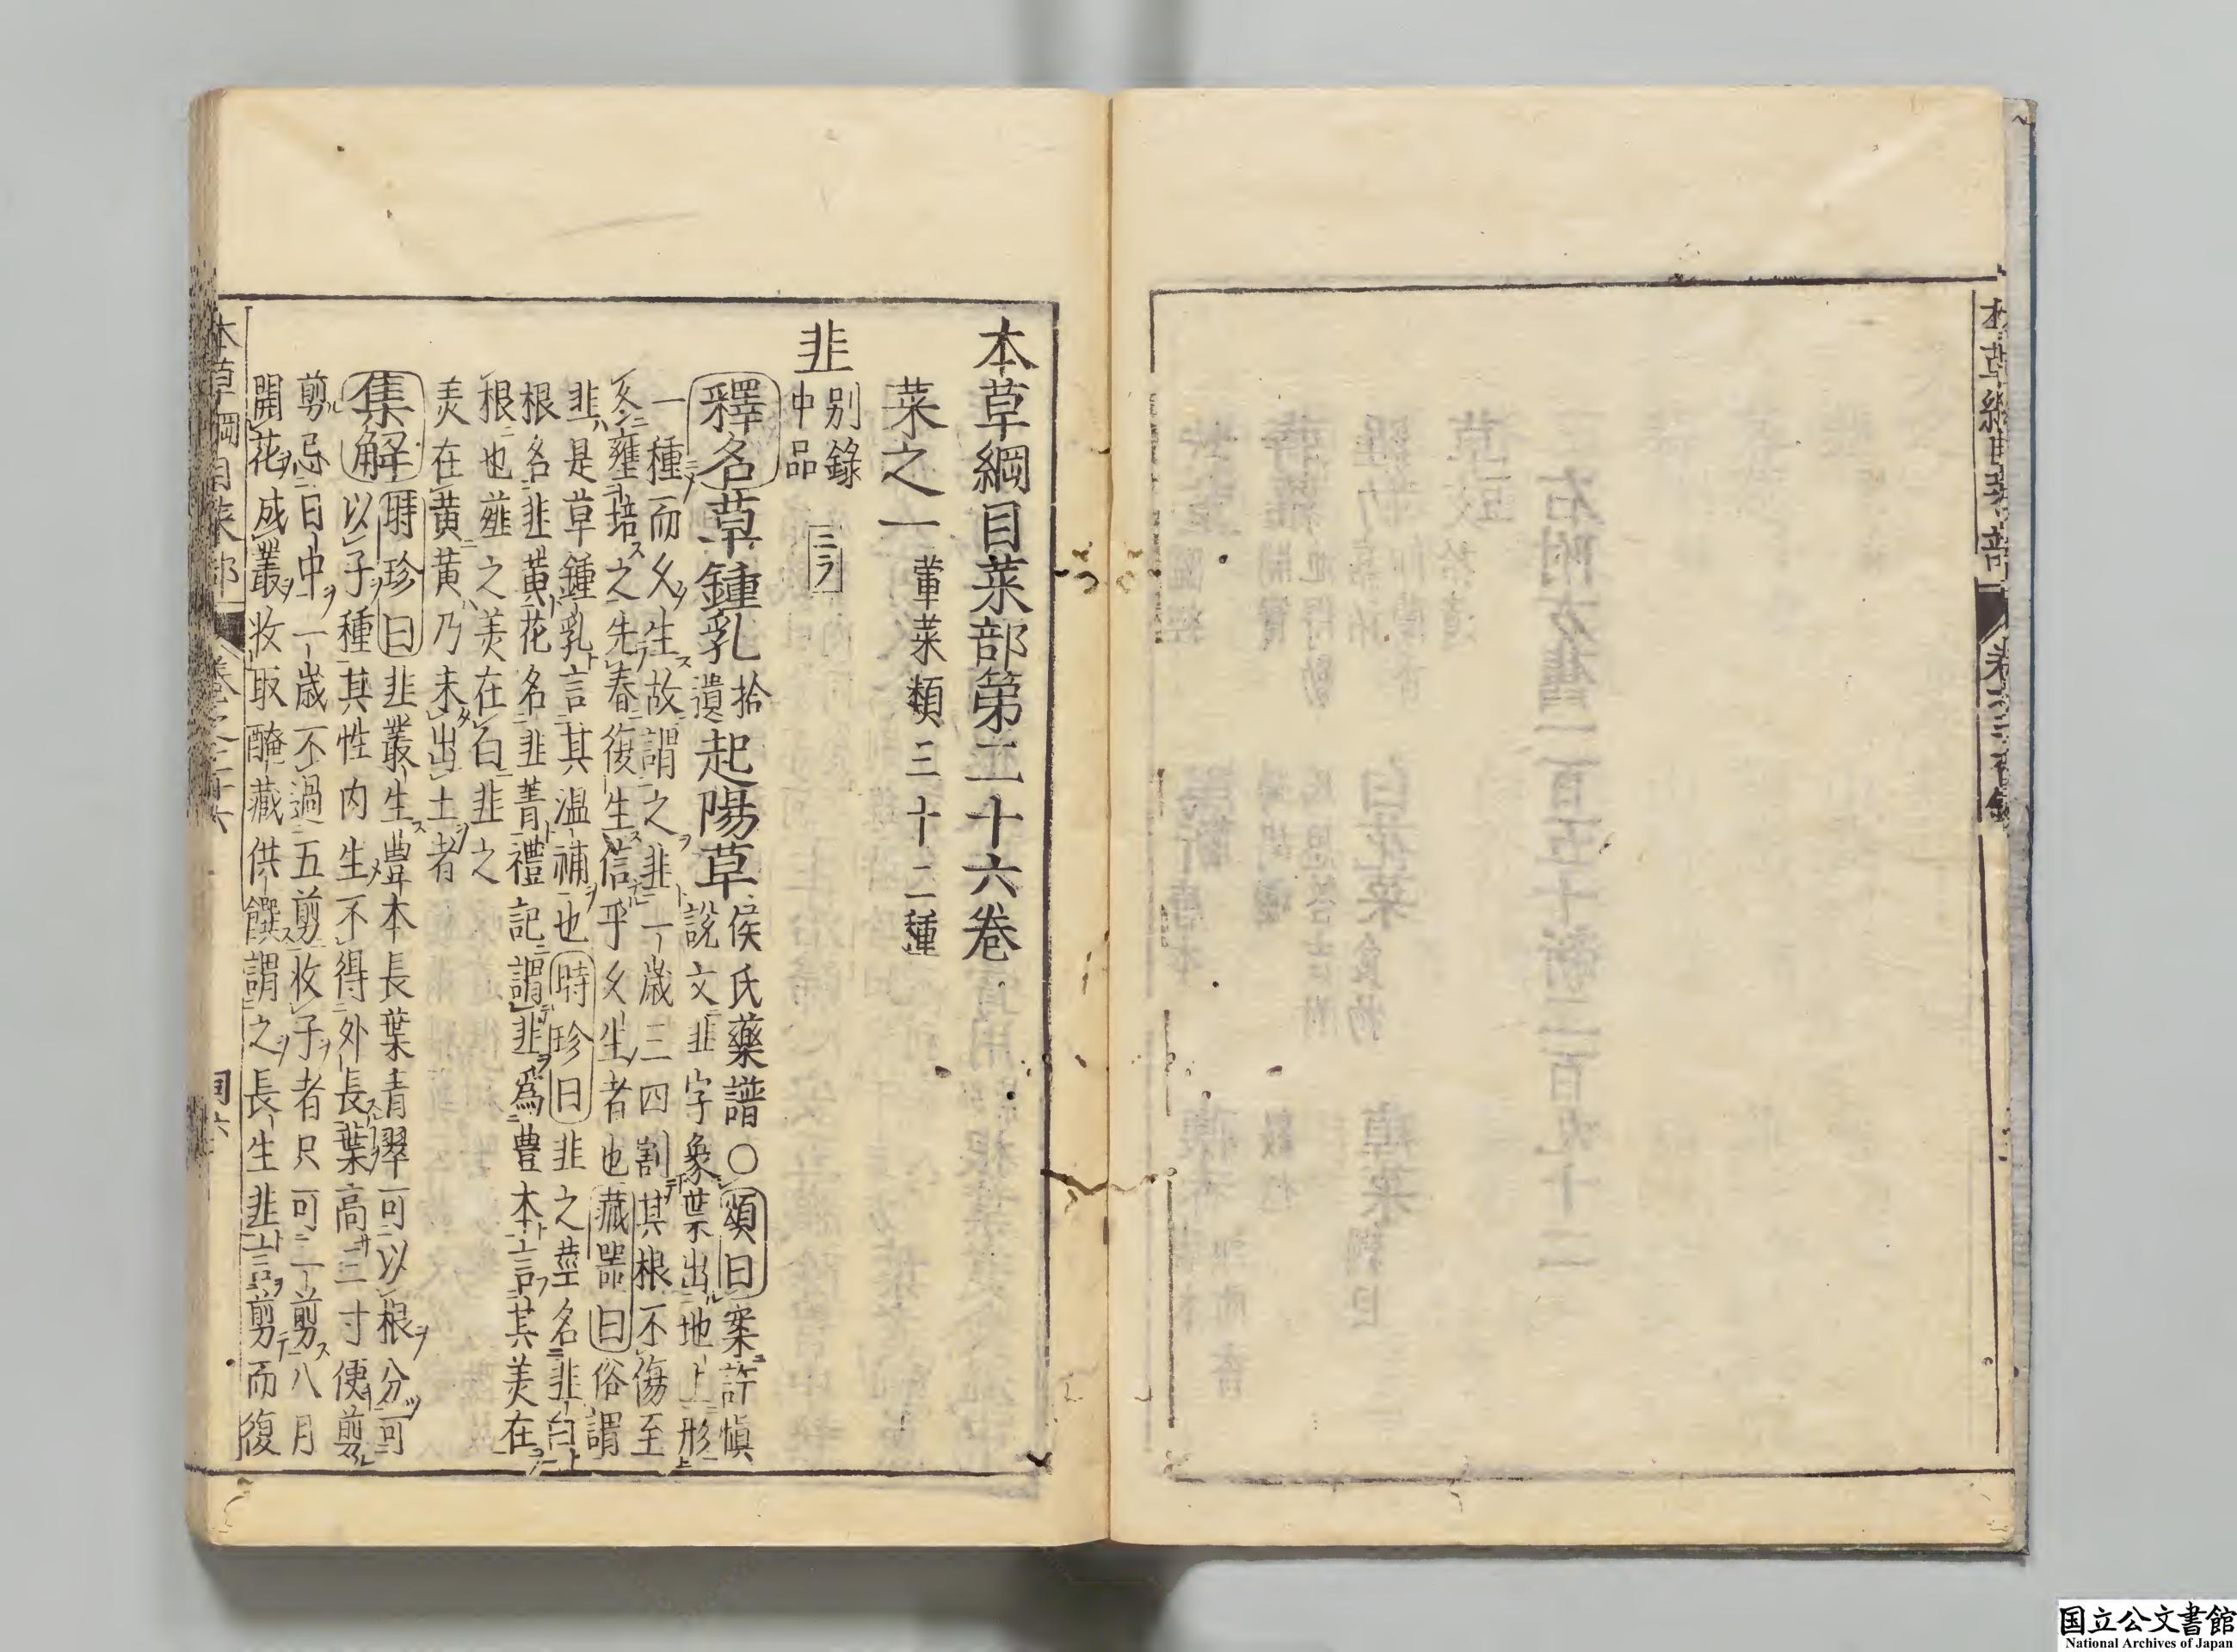 本草綱目菜部第二十六卷
菜之一 葷菜類三十二種
韭 别錄中品 ニラ
釋名草鍾乳拾遺起陽草侯氏藥譜○頌曰案許愼
說文韭字象葉出地上形
一種而久生故謂之韭一歲三四割其根不傷至
冬壅培之先春復生信乎久生者也藏器曰俗謂
韭是草鍾乳言其温補也時珍曰韭之莖名韭白
根名韭黃花名韭菁禮記謂韭爲豊本言其美在
根也薤之美在白韭之
美在黃黃乃未出土者
集解時珍曰韭叢生豊本長葉青翠可以根分可
以子種其性内生不得外長葉高三寸便剪
剪忌日中一歲不過五剪收子者只可一剪八月
開花成叢收取醃藏供饌謂之長生韭言剪而復
本草綱目菜部 卷之二十六
国立公文書館
National Archives of Japan